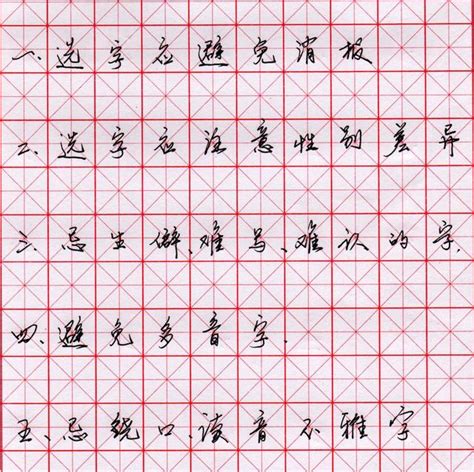 一、选字应避免消报
二、选字应注意性别差异
三、忌生僻、难写、难认的字.
四、避免多音字.
五、忌绕口、读音不雅字